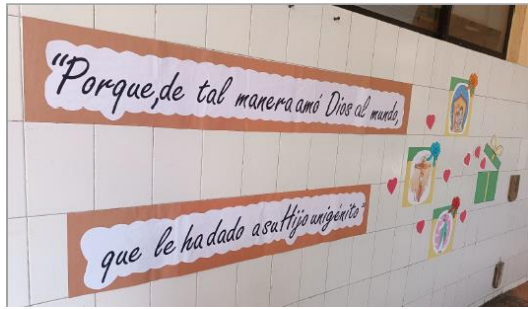 "Porque, de tal manera amó Dios al mundo,
que le ha dado a su Hijo unigénito"